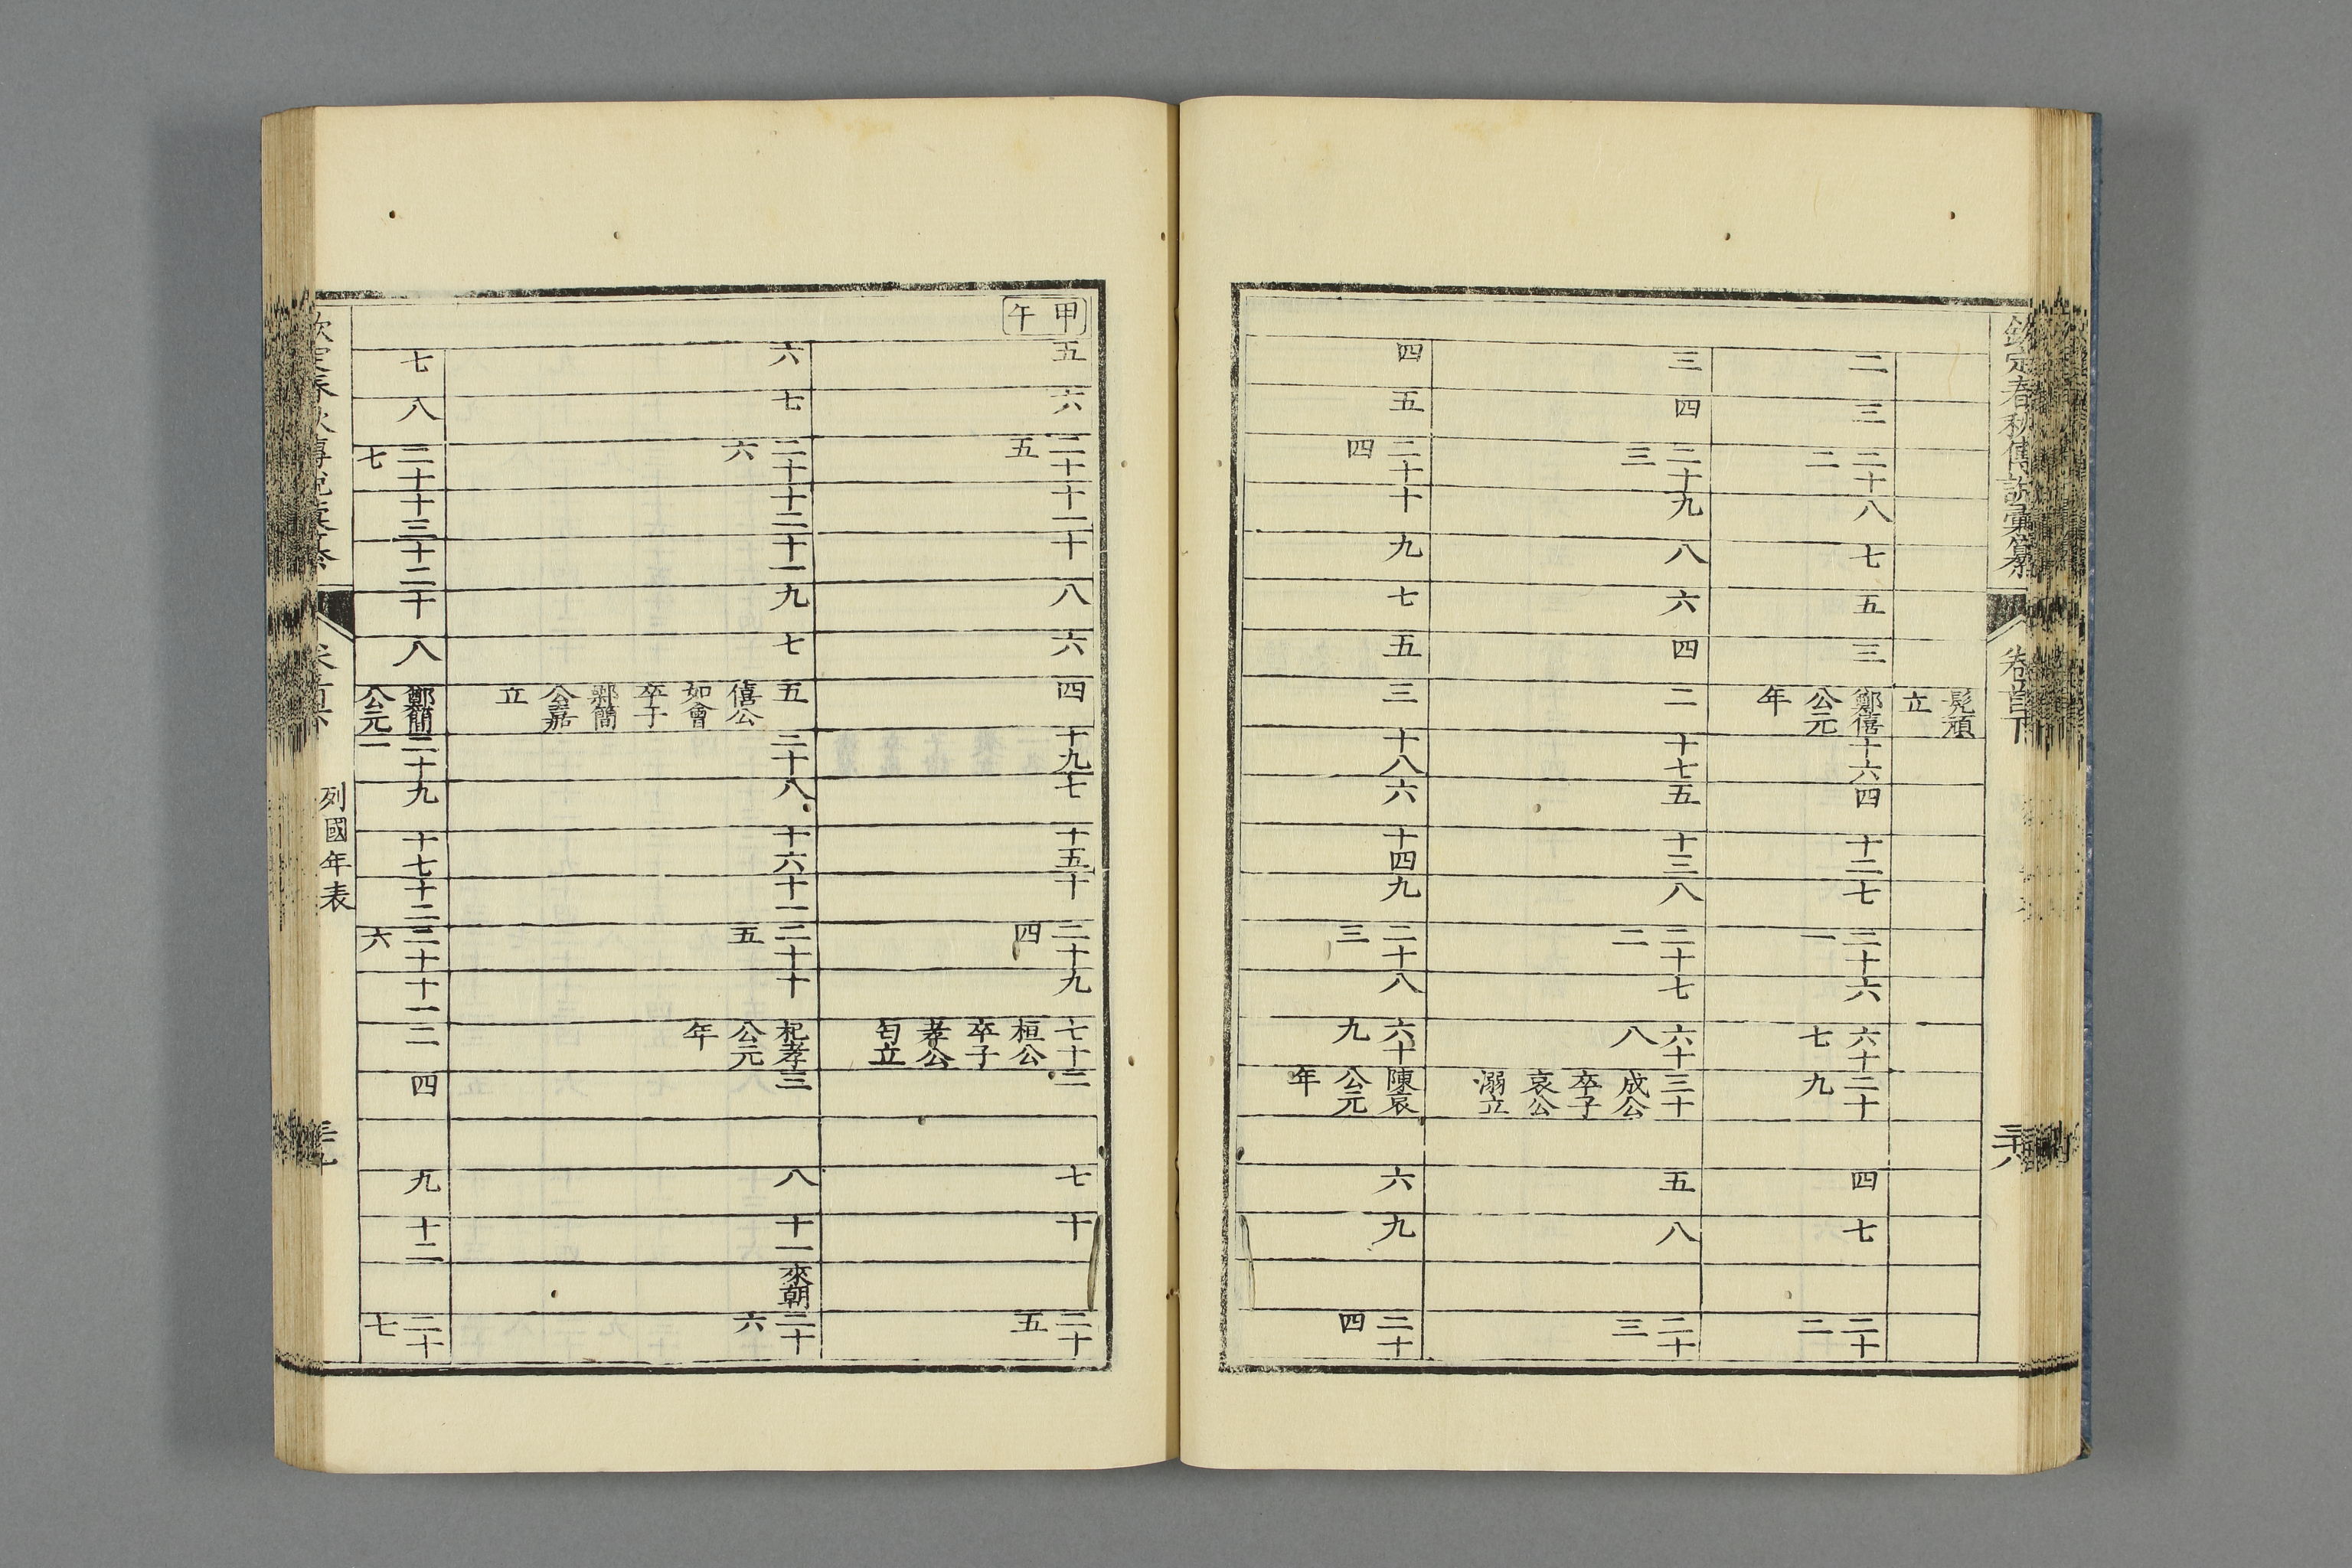 欽定春秋傳說彙纂 卷首下
髡頑立
二 三 二十二 八 七 五 三 鄭僖公元年 十六 四 十二 七 二十一 六 六十七 二十九 四 七 二十二
三 四 二十三 九 八 六 四 二 十七 五 十三 八 二十二 七 六十八 三十成公卒子哀公溺立 五 八 二十三
四 五 二十四 十 九 七 五 三 十八 六 十四 九 二十三 八 六十九 陳哀公元年 六 九 二十四
甲午 五 六 二十五 十一 十 八 六 四 十九 七 十五 十 二十四 九 七十桓公卒子孝公匄立 二 七 十 二十五
六 七 二十六 十二 十一 九 七 五僖公如會卒子鄭簡公嘉立 二十 八 十六 十一 二十五 十 杞孝公元年 三 八 十一 來朝 二十六
七 八 二十七 十三 十二 十 八 鄭簡公元 二十一 九 十七 十二 二十六 十一 二 四 九 十二 二十七
列國年表